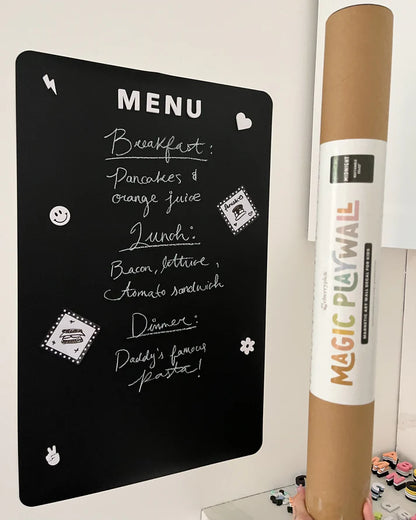 MENU
Breakfast:
Pancakes &
orange juice
Lunch:
Bacon, lettuce,
tomato sandwich
Dinner:
Daddy's famous
pasta!
Pancakes
MIDNIGHT
MAGIC PLAYWALL
MAGNETIC ART WALL DECAL FOR KIDS